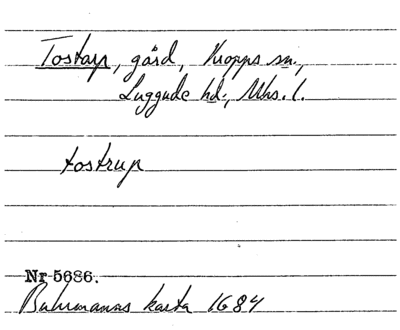 Tostarp, gård, Kropps sn.,
Luggude hd., Mhs. l.
tostrup
Nr 5686.
Buhrmanns karta 1684